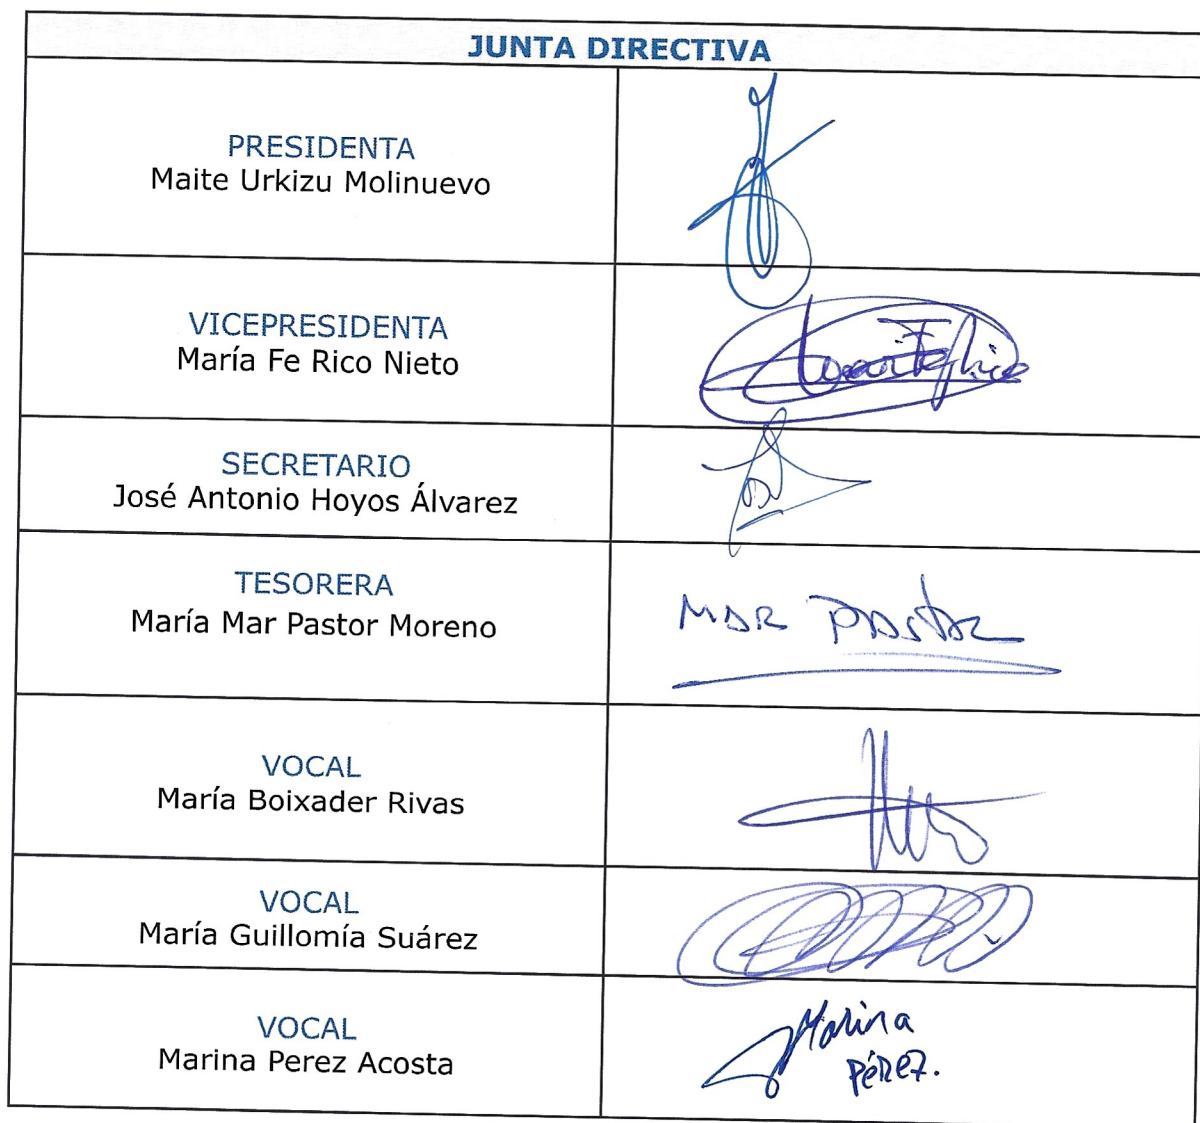 JUNTA DIRECTIVA
PRESIDENTA
Maite Urkizu Molinuevo
VICEPRESIDENTA
María Fe Rico Nieto
SECRETARIO
José Antonio Hoyos Álvarez
TESORERA
María Mar Pastor Moreno
MAR PASTOR
VOCAL
María Boixader Rivas
VOCAL
María Guillomía Suárez
VOCAL
Marina Perez Acosta
Marina
Pérez.